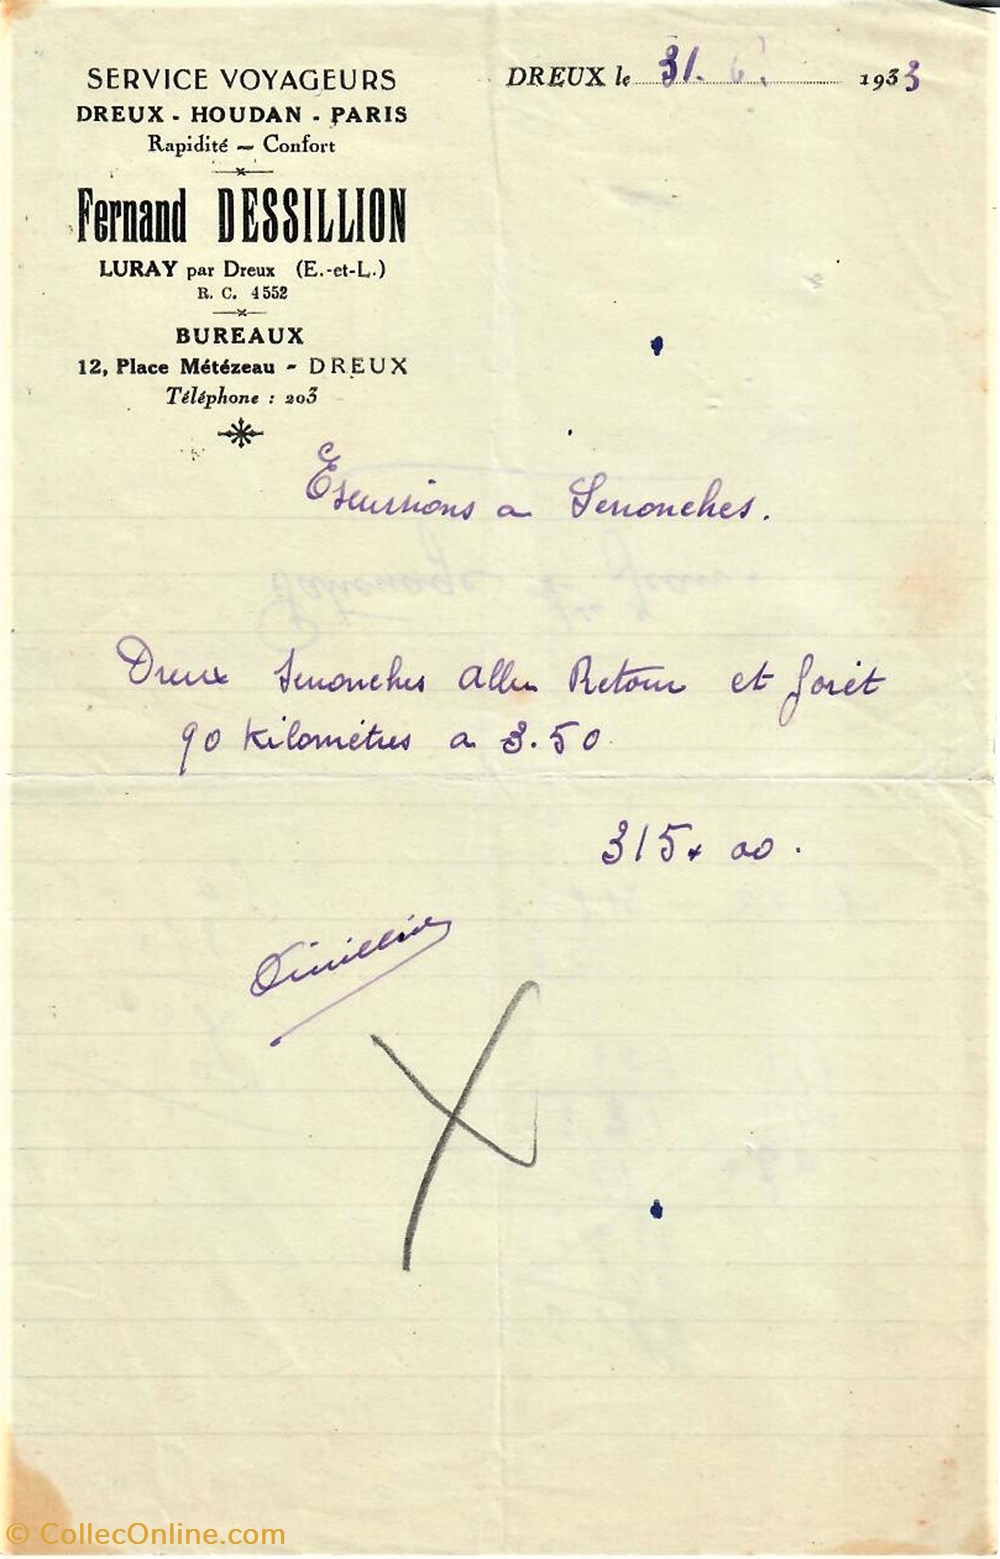 SERVICE VOYAGEURS
DREUX - HOUDAN - PARIS
Rapidité — Confort
Fernand DESSILLION
LURAY par Dreux (E.-et-L.)
R. C. 4552
BUREAUX
12, Place Métézeau - DREUX
Téléphone : 203
DREUX le 31. 6. 1933
Escursions a Senonches.
Dreux Senonches Aller Retour et forêt
90 Kilométres a 3.50
315 00.
© CollecOnline.com